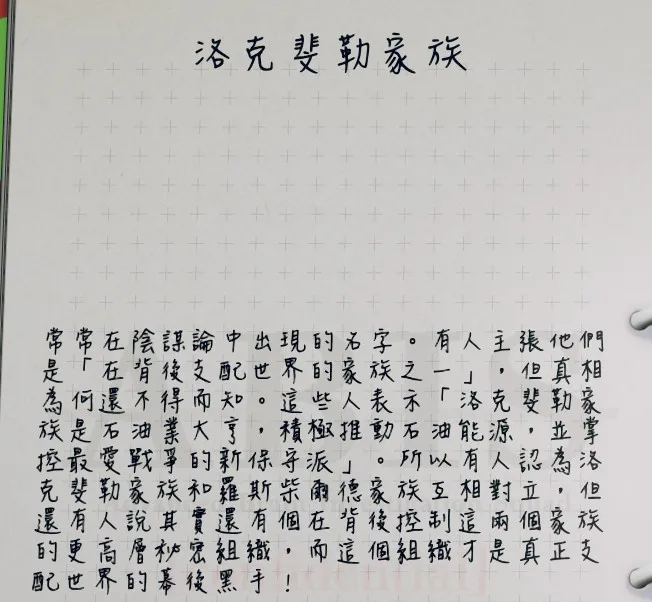 洛克斐勒家族
常常在陰謀論中出現的名字。有人主張他們
是「在背後支配世界的家族之一」，但真相
為何還不得而知。這些人表示「洛克斐勒家
族是石油業大亨，積極推動石油能源，並掌
控最愛戰爭的新保守派」。所以有人認為洛
克斐勒家族和羅斯柴爾德家族互相對立，但
還有人說其實還有個在背後控制這兩個家族
的更高層秘密組織，而這個組織才是真正支
配世界的幕後黑手！